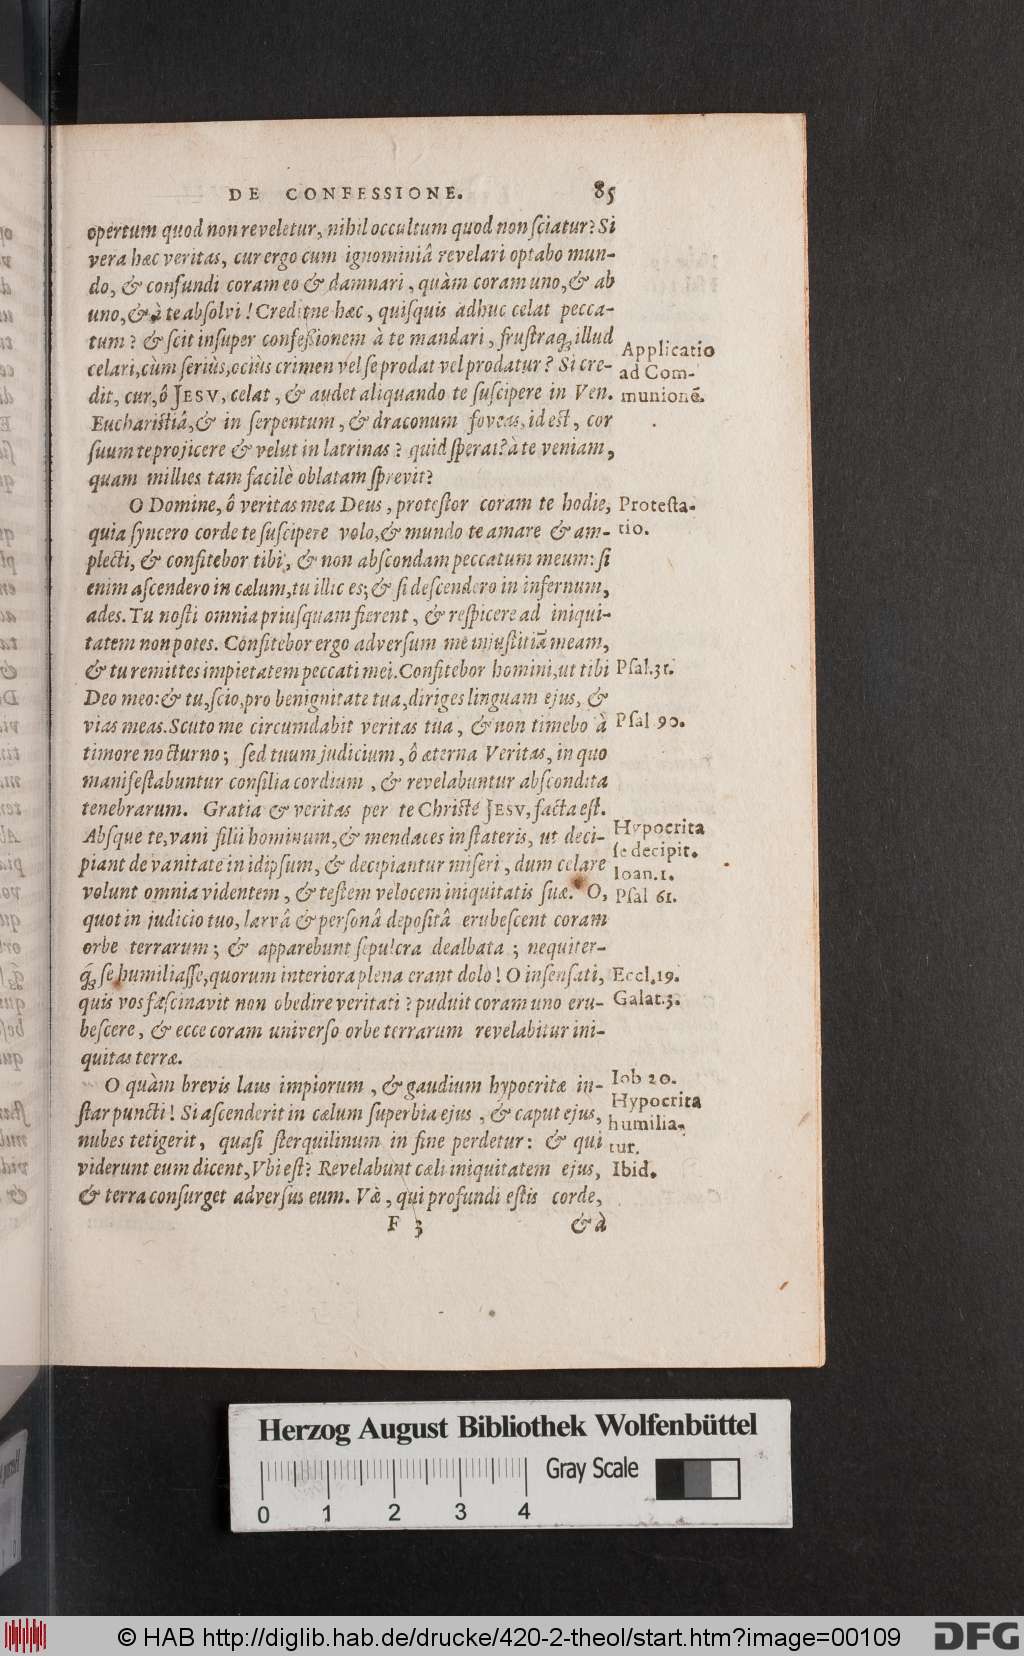 DE CONFESSIONE. 85
opertum quod non reveletur, nihil occultum quod non sciatur? Si
vera hæc veritas, cur ergo cum ignominiâ revelari optabo mun-
do, & confundi coram eo & damnari, quàm coram uno, & ab
uno, & à te absolvi! Creditne hæc, quisquis adhuc celat pecca-
tum? & scit insuper confeßionem à te mandari, frustraq; illud
celari, cùm seriùs, ociùs crimen vel se prodat vel prodatur? Si cre-
dit, cur, ô JESV, celat, & audet aliquando te suscipere in Ven.
Eucharistiâ, & in serpentum, & draconum foveas, id est, cor
suum te projicere & velut in latrinas? quid sperat? à te veniam,
quam millies tam facilè oblatam sprevit?
Applicatio
ad Com-
munionē.
O Domine, ô veritas mea Deus, protestor coram te hodie,
quia syncero corde te suscipere volo, & mundo te amare & am-
plecti, & confitebor tibi, & non abscondam peccatum meum: si
enim ascendero in cælum, tu illic es; & si descendero in infernum,
ades. Tu nosti omnia priusquam fierent, & respicere ad iniqui-
tatem non potes. Confitebor ergo adversum me injustitiā meam,
& tu remittes impietatem peccati mei. Confitebor homini, ut tibi
Deo meo: & tu, scio, pro benignitate tua, diriges linguam ejus, &
vias meas. Scuto me circumdabit veritas tua, & non timebo à
timore nocturno; sed tuum judicium, ô æterna Veritas, in quo
manifestabuntur consilia cordium, & revelabuntur abscondita
tenebrarum. Gratia & veritas per te Christe JESV, facta est.
Absque te, vani filii hominum, & mendaces in stateris, ut deci-
piant de vanitate in idipsum, & decipiantur miseri, dum celare
volunt omnia videntem, & testem velocem iniquitatis suæ. O,
quot in judicio tuo, larvâ & personâ depositâ erubescent coram
orbe terrarum; & apparebunt sepulcra dealbata; nequiter-
q; se humiliasse, quorum interiora plena erant dolo! O insensati,
quis vos fascinavit non obedire veritati? puduit coram uno eru-
bescere, & ecce coram universo orbe terrarum revelabitur ini-
quitas terræ.
Protesta-
tio.
Psal. 31.
Psal 90.
Hypocrita
se decipit.
Ioan. 1.
Psal 61.
Eccl. 19.
Galat. 3.
O quàm brevis laus impiorum, & gaudium hypocritæ in-
star puncti! Si ascenderit in cælum superbia ejus, & caput ejus,
nubes tetigerit, quasi sterquilinum in fine perdetur: & qui
viderunt eum dicent, Vbi est? Revelabunt cæli iniquitatem ejus,
& terra consurget adversus eum. Væ, qui profundi estis corde,
Iob 20.
Hypocrita
humilia-
tur.
Ibid.
F 3 & à
Herzog August Bibliothek Wolfenbüttel
Gray Scale
0 1 2 3 4
© HAB http://diglib.hab.de/drucke/420-2-theol/start.htm?image=00109
DFG